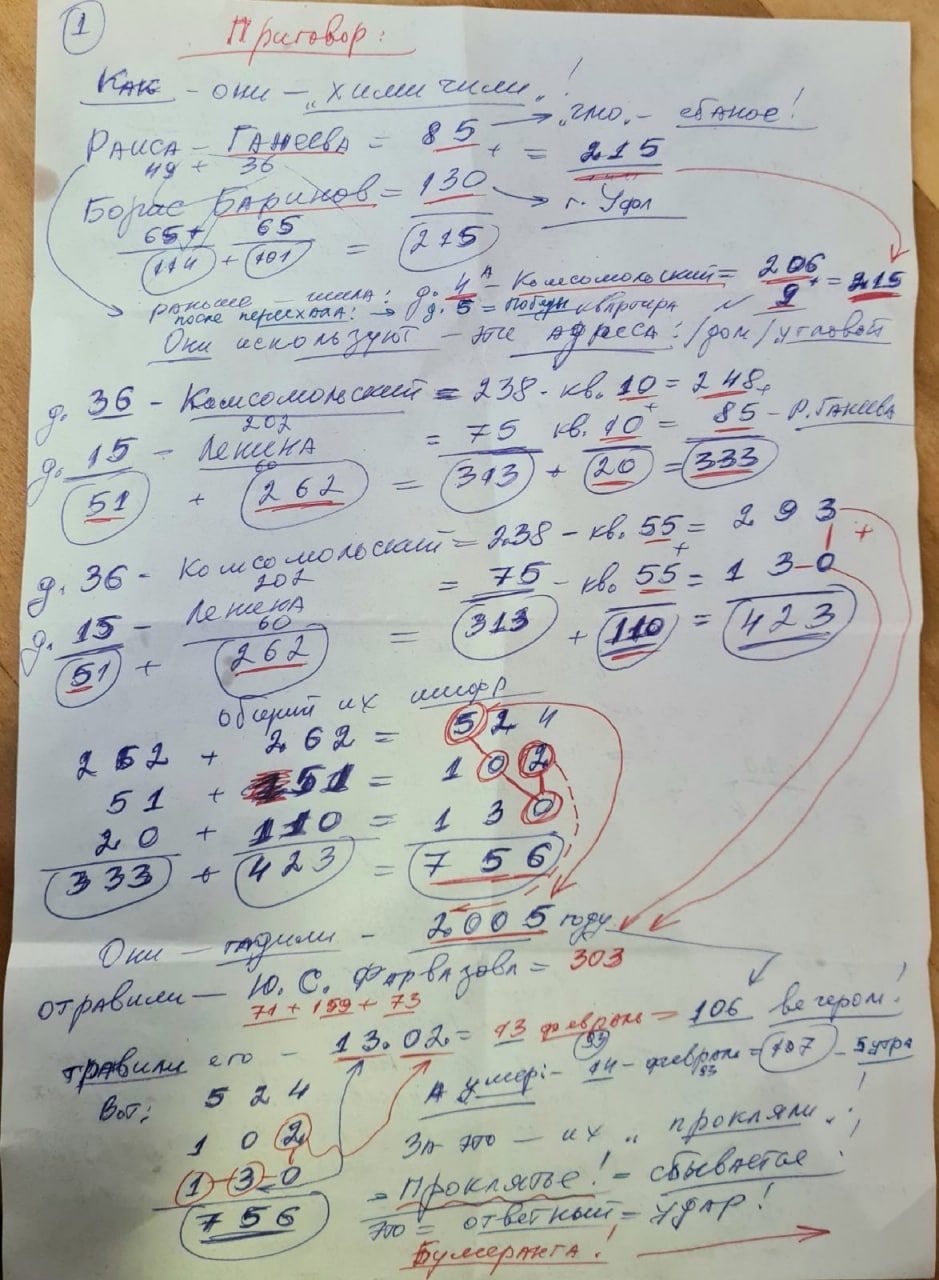 1
Приговор:
Как - они - "химичили"!
Раиса - Ганеева = 85 → "гмо" - ебаное!
49 + 36 + = 215
Борис Баринов = 130 → г. Уфа
65 + 65
114 + 101 = 215
раньше - жила: д. 4А - Комсомольский = 206 + = 215
после переезда: → д. 5 = Победы квартира № 9
Они используют - эти адреса: /дом/угловой
д. 36 - Комсомольский = 238 - кв. 10 = 248 +
202
д. 15 - Ленина = 75 кв. 10 = 85 - Р. Ганеева
60
51 + 262 = 313 + 20 = 333
д. 36 - Комсомольский = 238 - кв. 55 = 293 +
202
д. 15 - Ленина = 75 - кв. 55 = 130
60
51 + 262 = 313 + 110 = 423
общий их шифр
262 + 262 = 524
51 + 51 = 102
20 + 110 = 130
333 + 423 = 756
Они - гадили - 2005 году
отравили - Ю. С. Фарвазова = 303
71 + 159 + 73
травили его - 13.02. = 13 февраль = 106 вечером!
93
Вот: 524 А умер: - 14 - февраль = 107 - 5 утра
93
102 За это - их "прокляли"!
130 = Проклятье! - сбывается!
756 это = ответный = удар!
Бумеранга!